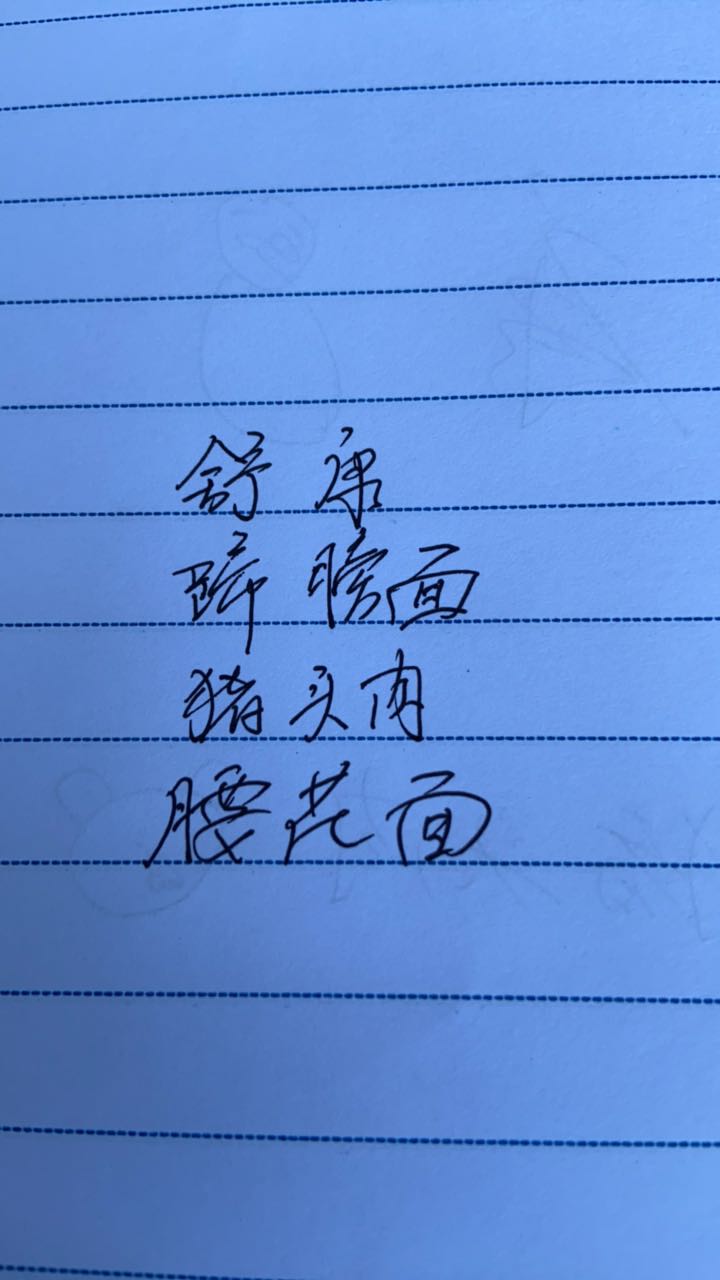 舒康
蹄膀面
猪头肉
腰花面